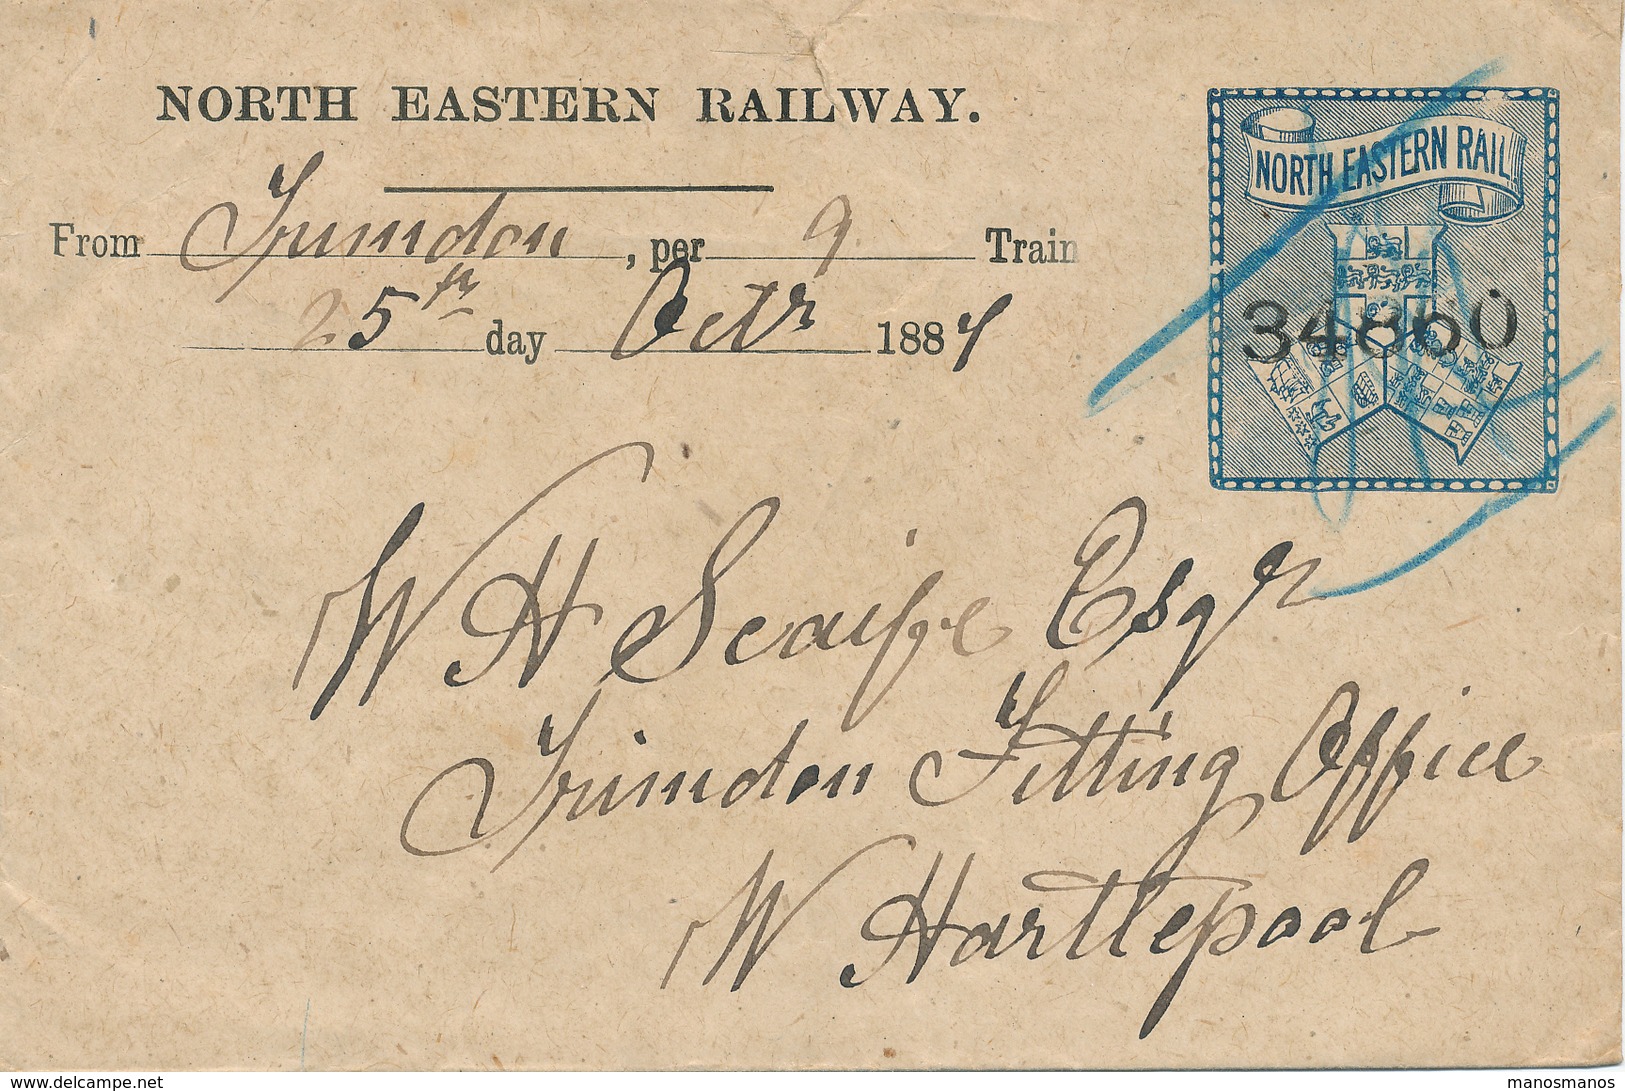 NORTH EASTERN RAILWAY.
NORTH EASTERN RAIL.
From Trimdon, per 9 Train
25th day Octr 1884
34860
W H Scaife Esqr
Trimdon Fitting Office
W Hartlepool
www.delcampe.net
manosmanos